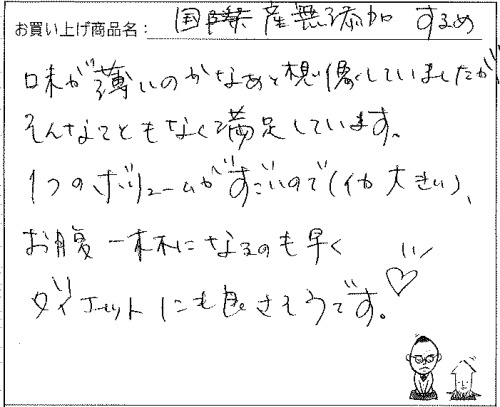 お買い上げ商品名: 国産無添加 するめ
味が薄いのかなぁと想像していましたが
そんなこともなくて満足しています。
1つのボリュームがすごいので(イカ大きい)、
お腹一杯になるのも早く
ダイエットにも良さそうです。♡